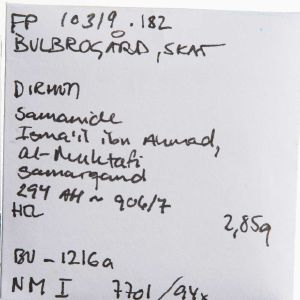 FP 10319.182
BULBROGÅRD, SKAT
DIRHM
Samanide
Isma'il ibn Ahmad,
al-Muktafi
Samarqand
294 AH ~ 906/7
HR
2,85g
BU - 1216a
NM I 7701/94x